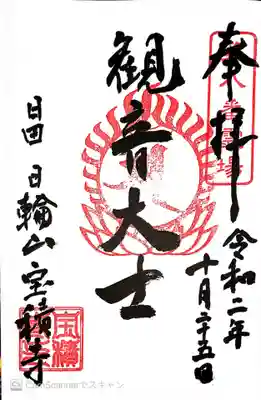 奉拝
番霊場
令和二年
十月二十五日
観音大士
日田 日輪山 宝積寺
CamScannerでスキャン